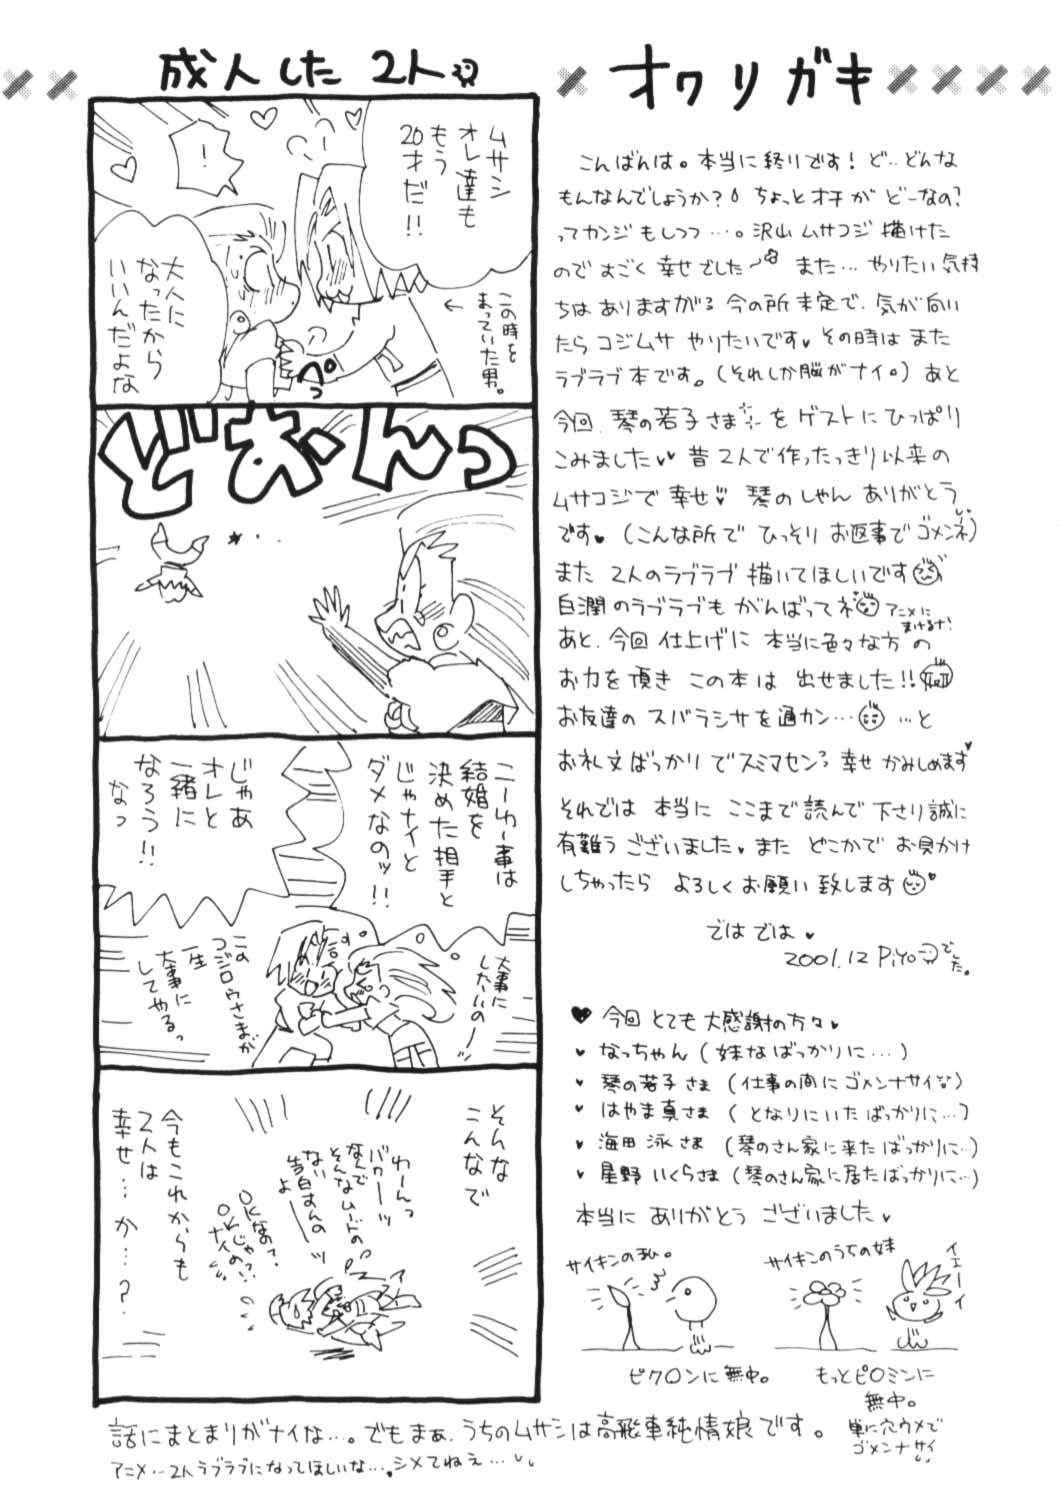 成人した 2人
ムサシ
オレ達も
もう
20才だ!!
!
この時を
まっていた男。
大人に
なったから
いいんだよな
ぺっ
どおーんっ
こーゆー事は
結婚を
決めた相手と
じゃナイと
ダメなのッ!!
じゃあ
オレと
一緒に
なろう!!
なっ
大事に
したいのー
この
コジロウさまが
一生
大事に
してやるっ
そんな
こんなで
わーんっ
バカーッ
なんで
そんなムードの
ない
告白すんの
よーッ
OKなの?
OKじゃ
ナイの!?
今もこれからも
2人は
幸せ…か…?
話にまとまりがナイな…。でもまぁ、うちのムサシは高飛車純情娘です。
アニメ…2人ラブラブになってほしいな…シメてねえ…
オワリガキ
こんばんは。本当に終りです! ど‥どんな
もんなんでしょうか? ちょっとオチが どーなの?
ってカンジもしつつ…。沢山ムサコジ描けた
のですごく幸せでした〜 また…やりたい気持
ちはありますが、今の所未定で、気が向い
たらコジムサやりたいです♥ その時はまた
ラブラブ本です。(それしか脳がナイ。) あと
今回、琴の若子さまをゲストにひっぱり
こみました♥♥ 昔2人で作ったっきり以来の
ムサコジで幸せ♥ 琴のしゃん ありがとう
です♥ (こんな所でひっそりお返事でゴメンネ)
また 2人のラブラブ描いてほしいです
白潤のラブラブもがんばってネ アニメに
まけるな!
あと、今回仕上げに本当に色々な方の
お力を頂きこの本は出せました!!
お友達のスバラシサを通カン… …と
お礼文ばっかりでスミマセン 幸せかみしめます♥
それでは本当にここまで読んで下さり誠に
有難うございました。また どこかで お見かけ
しちゃったら よろしくお願い致します♥
ではでは♥
2001.12 Piyoでした。
♥ 今回とても大感謝の方々♥
♥ なっちゃん (妹なばっかりに…)
♥ 琴の若子さま (仕事の間にゴメンナサイ)
♥ はやま真さま (となりにいたばっかりに…)
♥ 海田泳さま (琴のさん家に来たばっかりに…)
♥ 星野いくらさま (琴のさん家に居たばっかりに…)
本当にありがとうございました♥
サイキンの私。
ピク○ンに無中。
サイキンのうちの妹
イエーイ
もっとピ○ミンに
無中。
単に穴ウメで
ゴメンナサイ